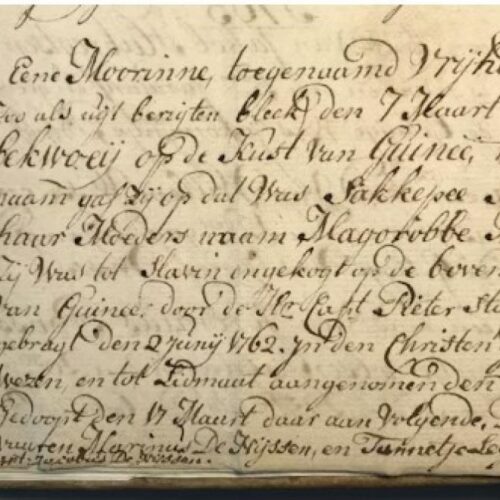 Eene Moorinne, toegenaamd Vrijh
zoo als uijt berigten bleek, den 7 Maart
bekwoeij op de Kust van Guinee,
naam gaf zij op dat was Jakkepee
haar Moeders naam Magorobbe
Zij was tot slavin ingekogt op de boven
van Guinee, door de Hr. Capt Pieter
gebragt den 2 Junij 1762. In den Christen
wezen, en tot Ledmaat aangenomen den
Gedoopt den 17 Maart daar aan volgende.
waaren Marinus De Wijssen, en Tannetje